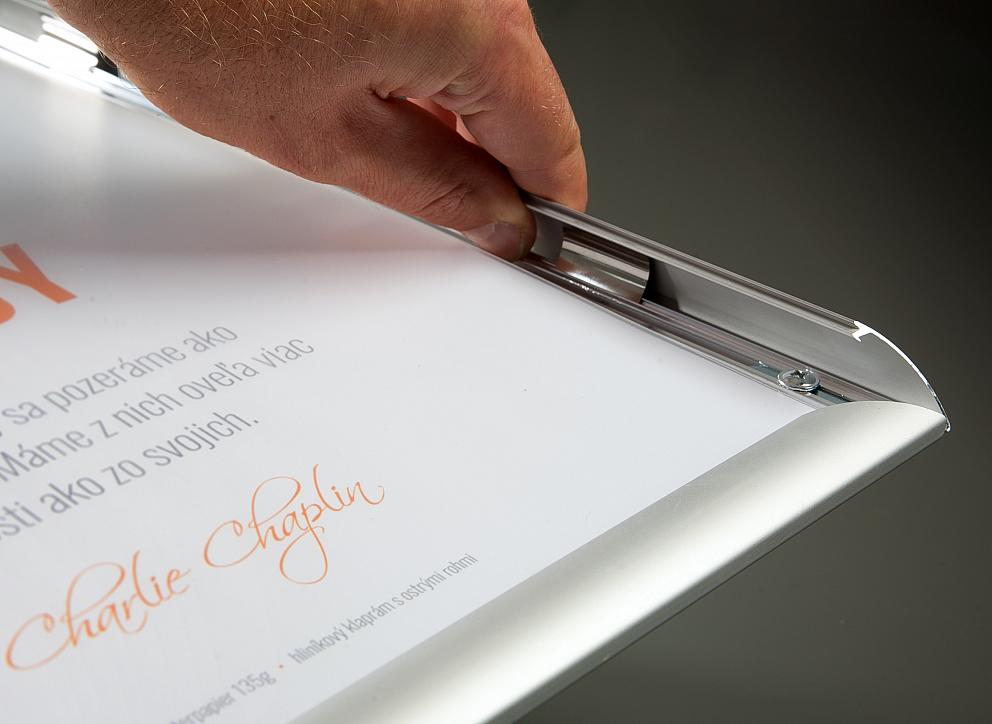 sa pozeráme ako
Máme z nich oveľa viac
ako zo svojich.
Charlie Chaplin
135g • hliníkový klaprám s ostrými rohmi